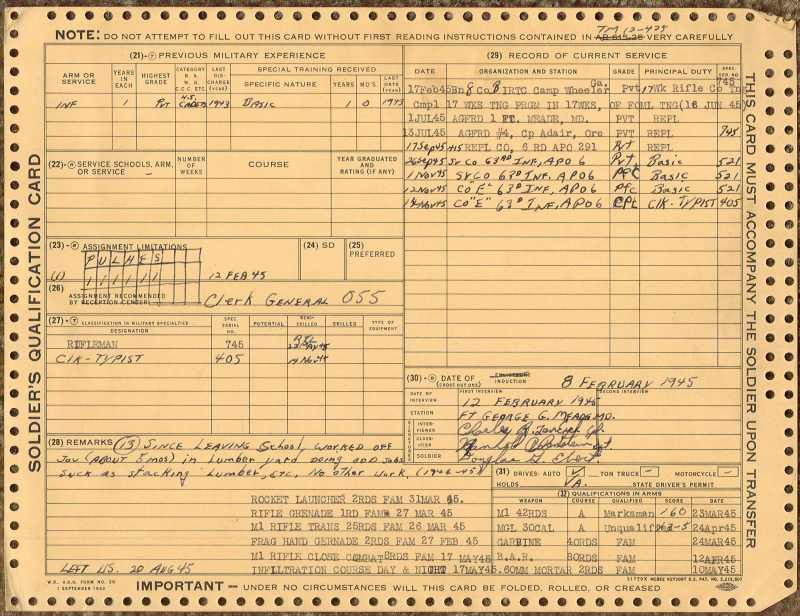 TM 12-425
NOTE: DO NOT ATTEMPT TO FILL OUT THIS CARD WITHOUT FIRST READING INSTRUCTIONS CONTAINED IN AR 615-25 VERY CAREFULLY
SOLDIER'S QUALIFICATION CARD
(21)-T PREVIOUS MILITARY EXPERIENCE
ARM OR SERVICE
YEARS IN EACH
HIGHEST GRADE
CATEGORY R. A. N. G. C.C.C. ETC.
LAST DISCHARGE (YEAR)
SPECIAL TRAINING RECEIVED
SPECIFIC NATURE
YEARS
MO'S.
LAST DATE (YEAR)
INF 1 Pvt H.S. CADETS 1943 Basic 1 0 1943
(22)-R SERVICE SCHOOLS, ARM, OR SERVICE -
NUMBER OF WEEKS
COURSE
YEAR GRADUATED AND RATING (IF ANY)
(23)-R ASSIGNMENT LIMITATIONS
P U L H E S
(1) 1 1 1 1 1 1 12 FEB 45
(24) SD
(25) PREFERRED
(26) ASSIGNMENT RECOMMENDED BY RECEPTION CENTER
Clerk General 055
(27)-T CLASSIFICATION IN MILITARY SPECIALTIES
DESIGNATION
SPEC. SERIAL NO.
POTENTIAL
SEMI-SKILLED
SKILLED
TYPE OF EQUIPMENT
RIFLEMAN 745
Clk-TYPIST 405 14 Nov 45
(28) REMARKS (13) SINCE LEAVING School, WORKED OFF
IN Lumber yard DOING ODD JOBS
Such as stacking Lumber, etc. No other work. (1940-45)
ROCKET LAUNCHER 2RDS FAM 31MAR 45.
RIFLE GRENADE 1RD FAM 27 MAR 45
M1 RIFLE TRANS 25RDS FAM 26 MAR 45
FRAG HAND GERNADE 2RDS FAM 27 FEB 45
M1 RIFLE CLOSE COMBAT 8RDS FAM 17 MAY45
INFILTRATION COURSE DAY & NIGHT 17MAY45.
LEFT U.S. 20 AUG 45
(29) RECORD OF CURRENT SERVICE
DATE
ORGANIZATION AND STATION
GRADE
PRINCIPAL DUTY
SPEC. SER. NO.
17Feb45 Bn8 Co B IRTC Camp Wheeler Ga. Pvt. 17Wk Rifle Co Tng 745
Cmpl 17 WKE TNG PRGM IN 17WKS, OF FOML TNG(16 JUN 45)
1JUL45 AGFRD 1 FT. MEADE, MD. PVT REPL
13JUL45 AGFRD #4, Cp Adair, Ore PVT REPL 745
17Sep45 REPL CO, 6 RD APO 291 Pvt REPL
26Sep45 SV Co 63RD INF, APO 6 Pvt. Basic 521
1 Nov45 SV Co 63D INF, APO 6 Pfc Basic 521
12 Nov45 Co "E" 63D INF, APO 6 Pfc Basic 521
14 Nov45 Co "E" 63D INF, APO 6 Clk-TYPIST 405
(30)-R DATE OF INDUCTION 8 FEBRUARY 1945
(CROSS OUT ONE)
DATE OF INTERVIEW
FIRST INTERVIEW
SECOND INTERVIEW
12 FEBRUARY 1945
STATION FT GEORGE G. MEADE MD.
SIGNATURES
INTERVIEWER
CLASSIFIER
SOLDIER
(31) DRIVES: AUTO ✓ TON TRUCK - MOTORCYCLE -
HOLDS VA. STATE DRIVER'S PERMIT
(32) QUALIFICATIONS IN ARMS
WEAPON
COURSE
QUALIFIED
SCORE
DATE
M1 42RDS A Marksman 160 23MAR45
MGL 30CAL A Unqualified 24Apr45
CARBINE 40RDS FAM 24MAR45
B.A.R. 80RDS FAM 12APR45
60MM MORTAR 2RDS FAM 10MAY45
THIS CARD MUST ACCOMPANY THE SOLDIER UPON TRANSFER
W.D., A.G.O. FORM NO. 20
1 SEPTEMBER 1942
IMPORTANT — UNDER NO CIRCUMSTANCES WILL THIS CARD BE FOLDED, ROLLED, OR CREASED